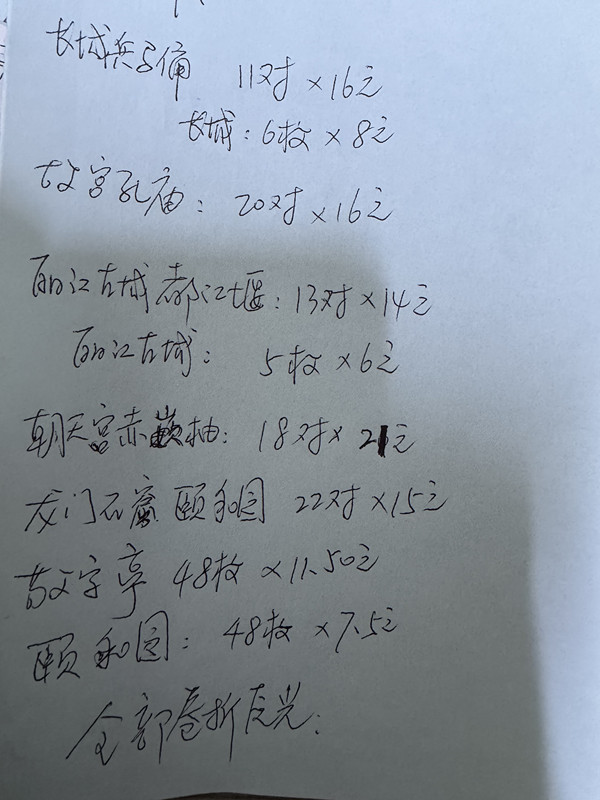 长城兵马俑 11对×16元
长城:6枚×8元
故宫孔庙:20对×16元
丽江古城都江堰:13对×14元
丽江古城: 5枚×6元
朝天宫赤嵌抽:18对×21元
龙门石窟 颐和园 22对×15元
敬字亭 48枚×11.50元
颐和园: 48枚×7.5元
全部卷拆原光.